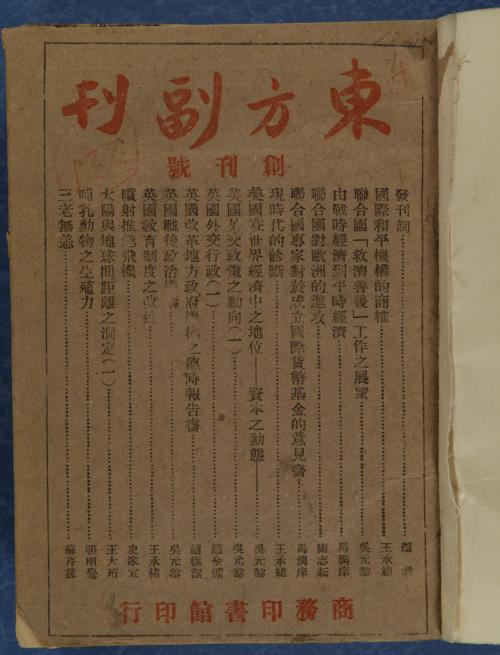 東方副刊
創刊號
發刊詞 編者
國際和平機構的商榷 王承緒
聯合國「救濟善後」工作之展望 吳元黎
由戰時經濟到平時經濟 馬潤庠
聯合國對歐洲的進攻
聯合國專家對於成立國際貨幣基金的意見書 馬潤庠
現時代的診斷 王承緒
美國在世界經濟中之地位——資本之動態—— 吳元黎
英國外交政策之動向(一) 吳元黎
英國外交行政(一)
英國改革地方政府機構之臨時報告書
英國戰後政治 吳元黎
英國教育制度之改進 王承緒
噴射推進飛機
太陽與地球間距離之測定(一) 王大珩
哺乳動物之生殖力
三老無恙 蘇芹蓀
商務印書館印行